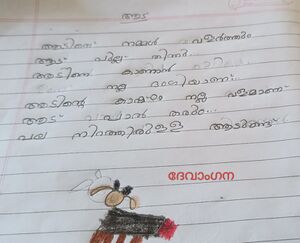 ആട്
ആടിനെ നമ്മൾ വളർത്തും
ആട് പുല്ല് തിന്നും
ആടിനെ കാണാൻ
നല്ല ഭംഗിയാണ്
ആടിന്റെ കാഷ്ഠം നല്ല വളമാണ്
ആട് പാൽ തരും
പല നിറത്തിലുള്ള ആടുണ്ട്
ദേവാംഗന